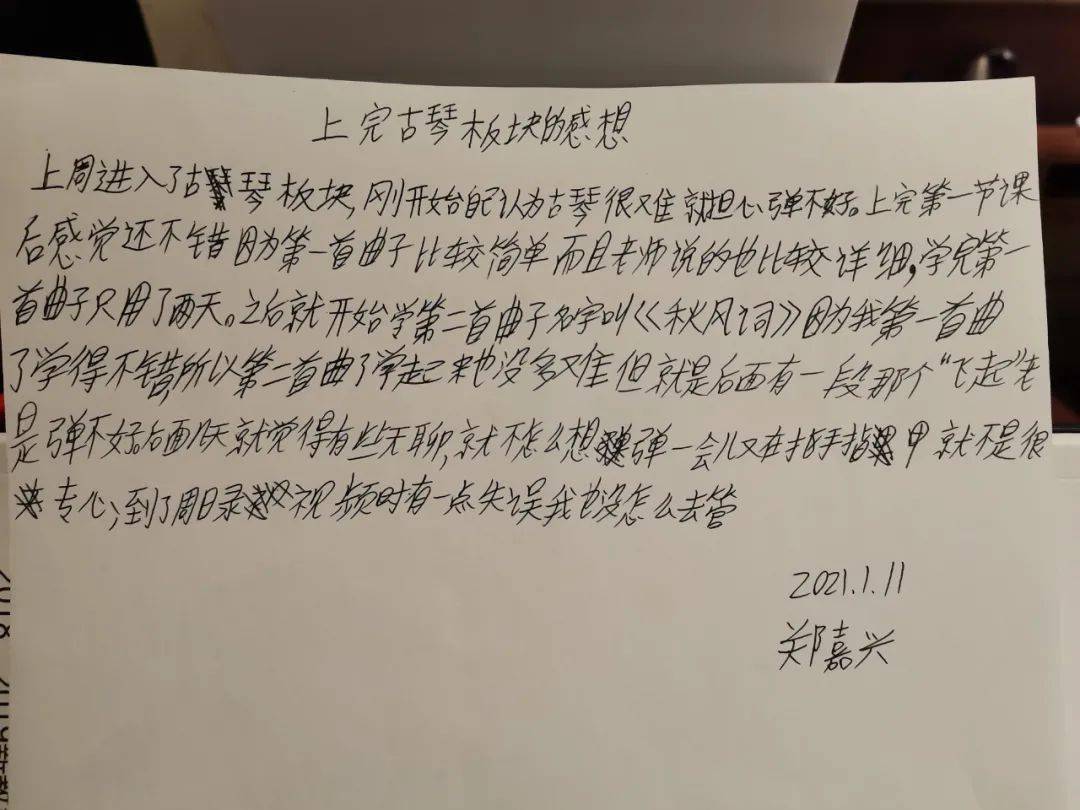 上完古琴板块的感想
上周进入了古琴板块,刚开始自己认为古琴很难就担心弹不好。上完第一节课
后感觉还不错因为第一首曲子比较简单而且老师说的也比较详细,学完第一
首曲子只用了两天。之后就开始学第二首曲子名字叫《秋风词》因为我第一首曲
了学得不错所以第二首曲了学起来也没多难但就是后面有一段那个“飞起”老
是弹不好后面几天就觉得有些无聊,就不怎么想弹一会儿又在指手指甲就不是很
专心;到了周日录视频时有一点失误我也没怎么去管
2021.1.11
郑嘉兴